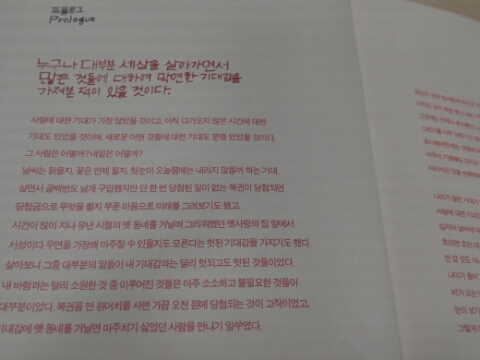 프롤로그
Prologue
누구나 대부분 세상을 살아가면서
많은 것들에 대하여 막연한 기대감을
가져본 적이 있을 것이다.
사람에 대한 기대가 가장 많았을 것이고, 아직 다가오지 않은 시간에 대한
기대도 있었을 것이며, 새로운 어떤 것들에 대한 기대도 분명 있었을 것이다.
그 사람은 어떨까? 내일은 어떨까?
날씨는 맑을지, 꽃은 언제 필지, 첫눈이 오늘쯤에는 내리지 않을까 하는 기대.
살면서 골백번도 넘게 구입했지만 단 한 번 당첨된 일이 없는 복권이 당첨되면
당첨금으로 무엇을 할지 부푼 마음으로 미래를 그려보기도 했고,
시간이 많이 지나 유년 시절의 옛 동네를 거닐며 그리워했던 옛사랑의 집 앞에서
서성이다 우연을 가장해 마주칠 수 있을지도 모른다는 헛된 기대감을 가지기도 했다.
살아보니 그중 대부분의 일들이 내 기대감과는 달리 헛되고도 헛된 것들이었다.
내 바람과는 달리 소원한 것 중 이루어진 것들은 아주 소소하고 불필요한 것들이
대부분이었다. 복권을 만 원어치를 사면 가끔 오천 원에 당첨되는 것이 고작이었고,
기대감에 옛 동네를 거닐면 마주치기 싫었던 사람을 만나기 일쑤였다.